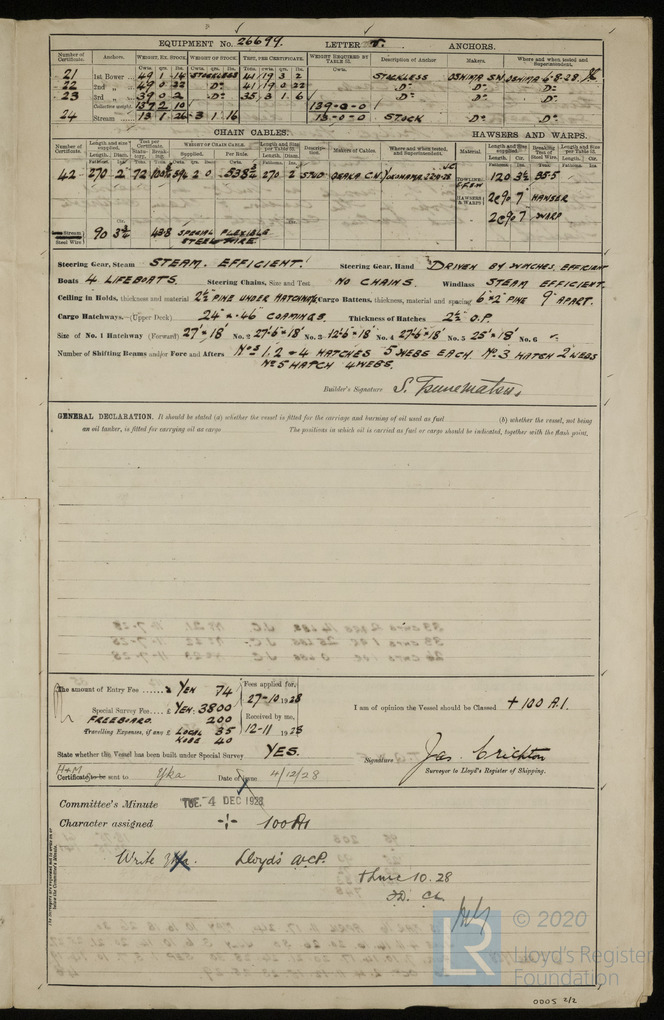 EQUIPMENT No. 26699. LETTER T. ANCHORS.
Number of Certificate. Anchors. WEIGHT, EX. STOCK. WEIGHT OF STOCK. TEST, PER CERTIFICATE. WEIGHT REQUIRED BY TABLE 53. Description of Anchor Makers. Where and when tested and Superintendent.
21 1st Bower 49 1 14 STOCKLESS 41 19 3 2 STOCKLESS OSHIMA S.N. OSHIMA 6-8-28
22 2nd „ 49 0 22 Do 41 19 0 22 Do Do Do
23 3rd „ 39 0 2 Do 35 3 1 6 Do Do Do
Collective weight 137 2 10 139-0-0
24 Stream 13 1 26 3 1 16 13-0-0 STOCK Do Do
CHAIN CABLES. HAWSERS AND WARPS.
Number of Certificate. Length and size supplied. Test per Certificate. WEIGHT OF CHAIN CABLE. Length and Size per Table 53. Description. Makers of Cables. Where and when tested, and Superintendent. Material. Length and Size supplied. Breaking Test of Steel Wire. Length and Size per Table 53.
Length. Diam. Supplied. Per Rule. Length. Diam. Length. Cir. Length. Cir.
42 270 2 72 594 2 0 538½ 270 2 STUD OSAKA C.N. TOWLINE 120 3½ 35.5
HAWSERS & WARPS 2@90 7 HAWSER
2@90 7 WARP
Steel Wire 90 43.8 SPECIAL FLEXIBLE
STEEL WIRE.
Steering Gear, Steam STEAM. EFFICIENT. Steering Gear, Hand DRIVEN BY WINCHES, EFFICIENT
Boats 4 LIFEBOATS. Steering Chains, Size and Test NO CHAINS. Windlass STEAM EFFICIENT.
Ceiling in Holds, thickness and material 2½" PINE UNDER HATCHWAY Cargo Battens, thickness, material and spacing 6"×2" PINE 9" APART.
Cargo Hatchways.—(Upper Deck) 24" × .46 COAMINGS. Thickness of Hatches 2½" O.P.
Size of No. 1 Hatchway (Forward) 27' × 18' No. 2 27'-6" × 18' No. 3 12'-6" × 18' No. 4 27'-6" × 18' No. 5 25' × 18' No. 6
Number of Shifting Beams and/or Fore and Afters Nos 1, 2 & 4 HATCHES 5 WEBS EACH. No. 3 HATCH 2 WEBS
No 5 HATCH 4 WEBS.
Builder's Signature S.
GENERAL DECLARATION. It should be stated (a) whether the vessel is fitted for the carriage and burning of oil used as fuel (b) whether the vessel, not being
an oil tanker, is fitted for carrying oil as cargo The positions in which oil is carried as fuel or cargo should be indicated, together with the flash point.
The amount of Entry Fee YEN 74
Special Survey Fee YEN. 3800
FREEBOARD. 200
Travelling Expenses, if any £ LOCAL 35
KOBE 40
Fees applied for,
27-10 1928
Received by me,
12-11 1928
I am of opinion the Vessel should be Classed + 100 A.1.
State whether the Vessel has been built under Special Survey YES.
Signature Jas. Crichton
Surveyor to Lloyd's Register of Shipping.
H+M
Certificate to be sent to Yka Date of issue 4/12/28
Committee's Minute TUE. 4 DEC 1928
Character assigned + 100A1
Write Yka. Lloyd's A&CP.
+ LMC 10.28
F.D. CL
© 2020
LR Lloyd's Register
Foundation
0005 2/2